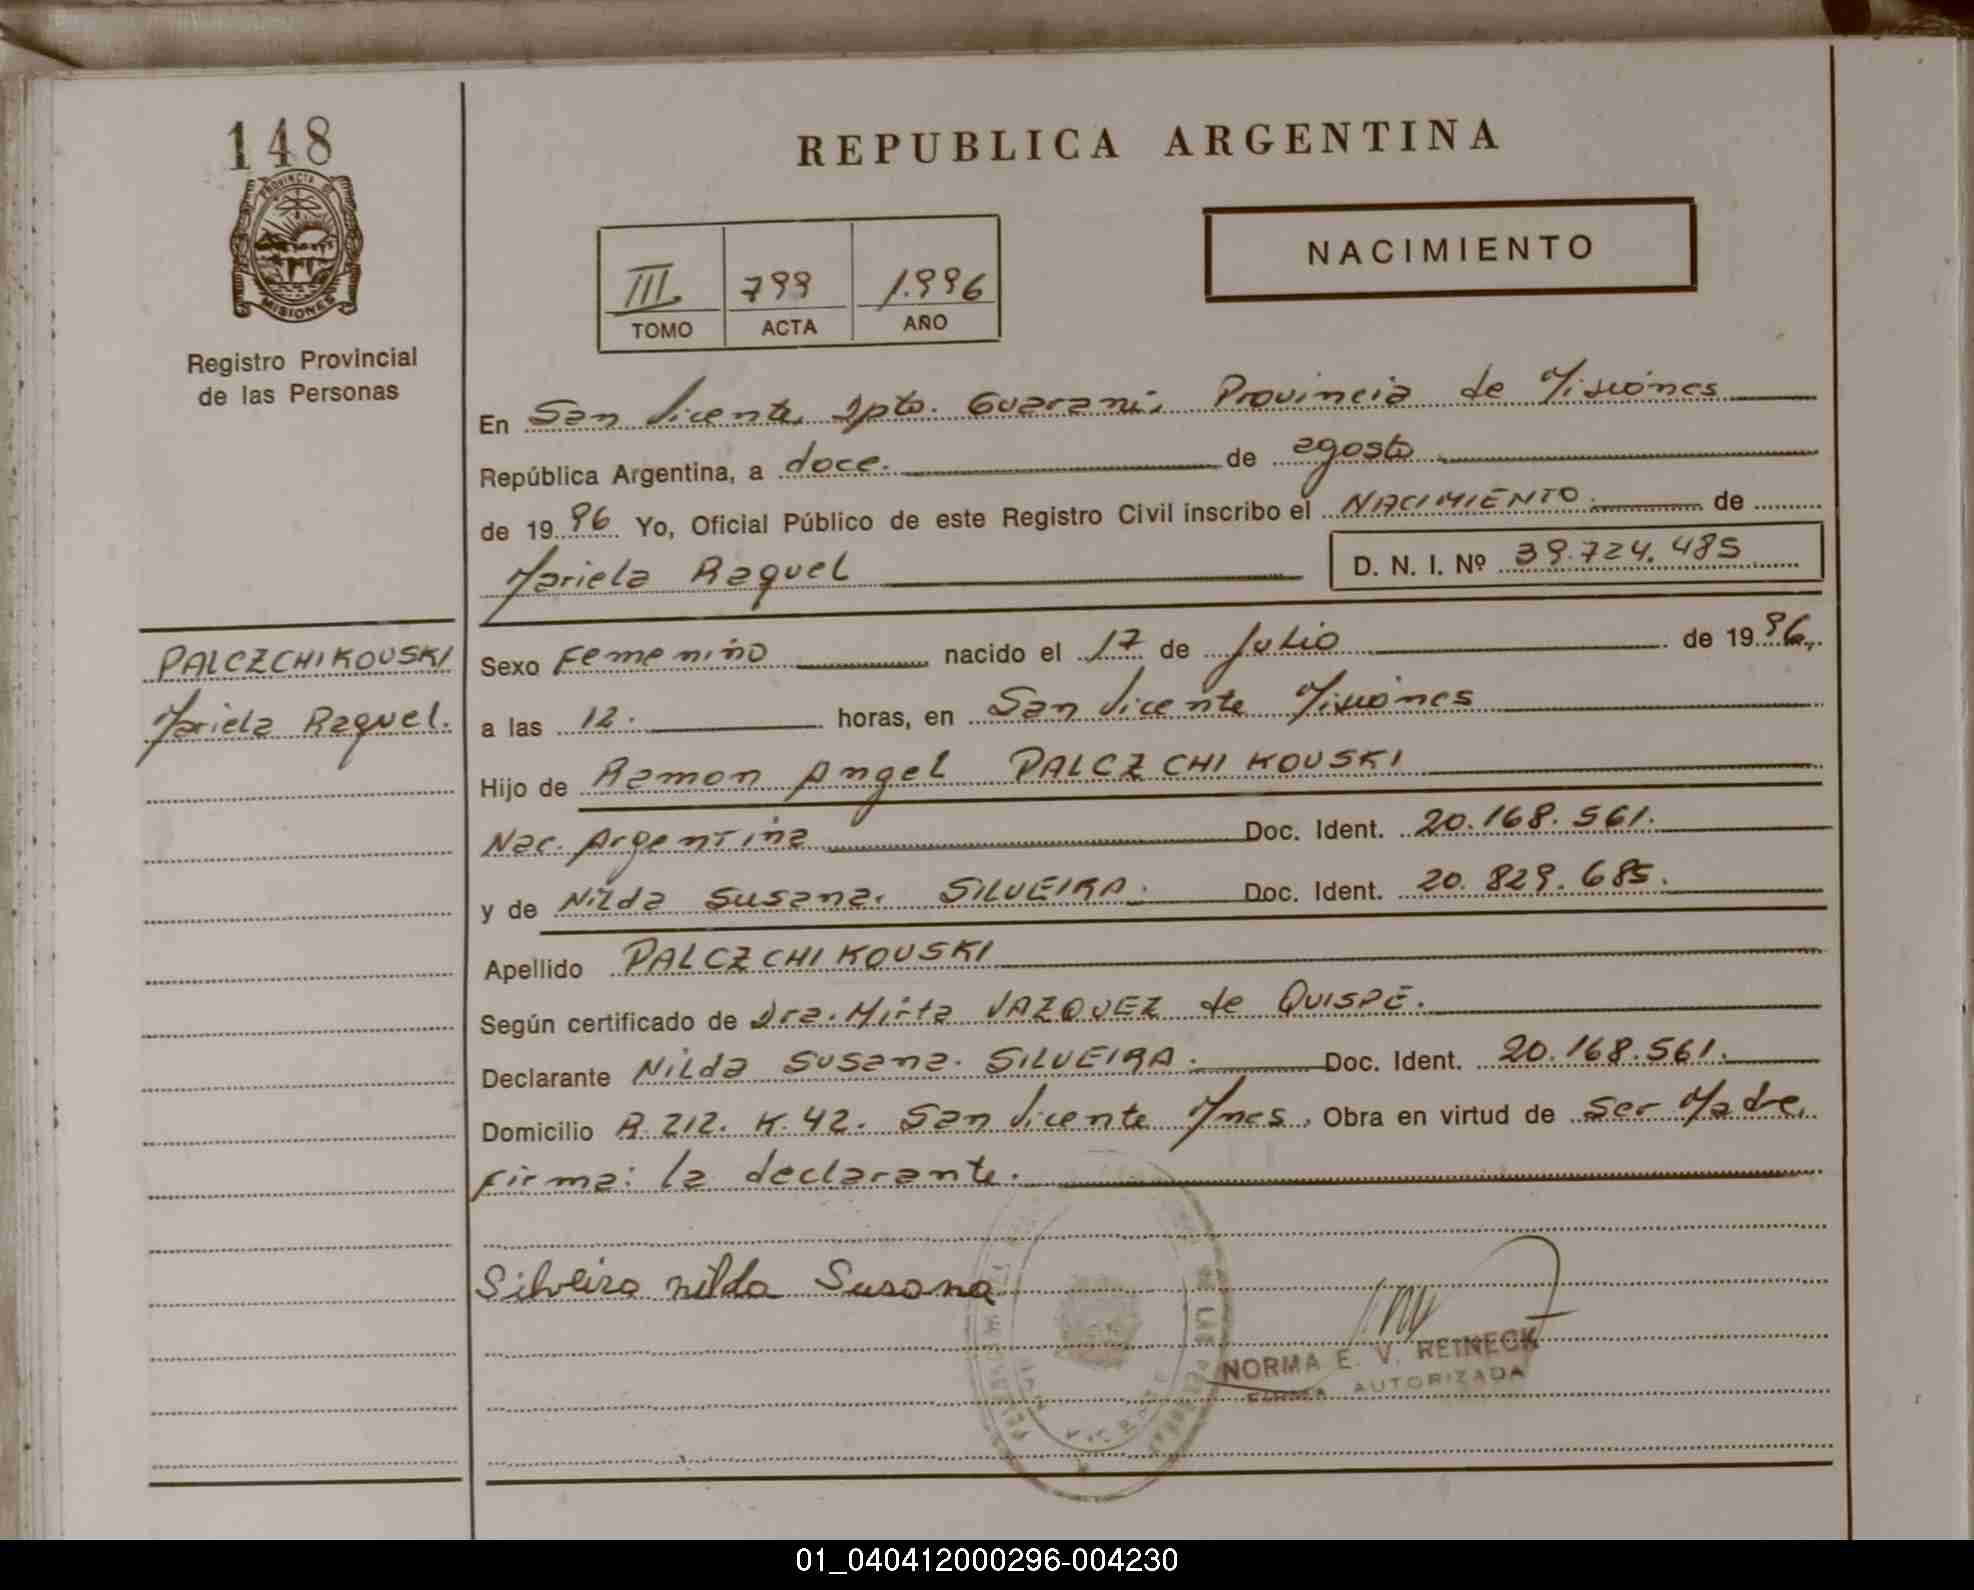 148
PROVINCIA DE
MISIONES
Registro Provincial
de las Personas
REPUBLICA ARGENTINA
NACIMIENTO
III 799 1.996
TOMO ACTA AÑO
En San Vicente, Dpto. Guarani, Provincia de Misiones
República Argentina, a doce. de agosto
de 1996 Yo, Oficial Público de este Registro Civil inscribo el NACIMIENTO. de
Mariela Raquel D. N. I. Nº 39.724.485
PALCZCHIKOUSKI
Mariela Raquel.
Sexo Femenino nacido el 17 de Julio de 1996.
a las 12. horas, en San Vicente Misiones
Hijo de Ramon Angel PALCZCHIKOUSKI
Nac. Argentina Doc. Ident. 20.168.561.
y de Nilda Susana. SILVEIRA. Doc. Ident. 20.829.685.
Apellido PALCZCHIKOUSKI
Según certificado de Dra. Mirta VAZQUEZ de QUISPE.
Declarante Nilda Susana. SILVEIRA. Doc. Ident. 20.168.561.
Domicilio R. 212. K. 42. San Vicente Mnes, Obra en virtud de ser Madre,
Firma: la declarante.
Silveira nilda Susana
NORMA E. V. REINECK
FIRMA AUTORIZADA
01_040412000296-004230